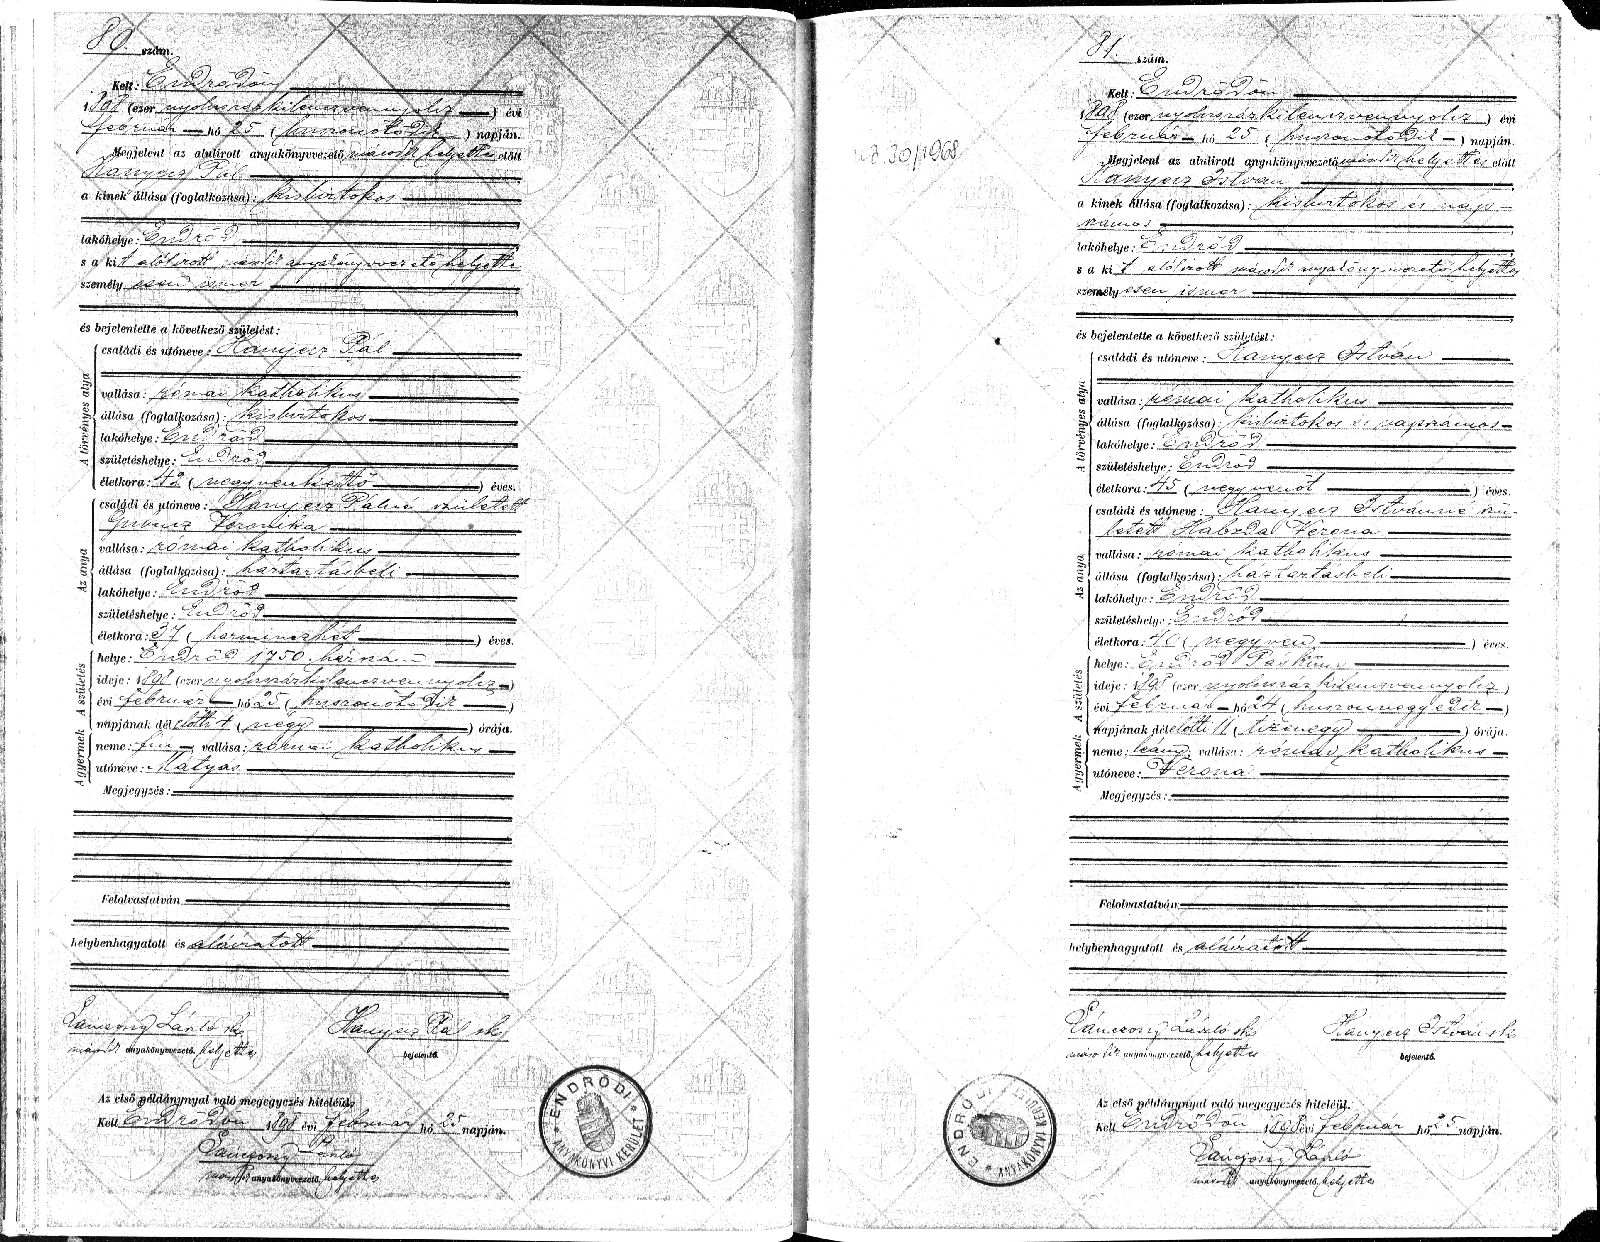 80. szám.
Kelt: Endrődön
1898 (ezer nyolcszázkilenczvennyolcz) évi
február hó 25 (huszonötödik) napján.
Megjelent az alulirott anyakönyvvezető második helyettes előtt
Hanyecz Pál
a kinek állása (foglalkozása): kisbirtokos
lakóhelye: Endrőd
s a kit előlirott második anyakönyvvezető helyettes
személyesen ismer
és bejelentette a következő születést:
A törvényes atya
családi és utóneve: Hanyecz Pál
vallása: római katholikus
állása (foglalkozása): kisbirtokos
lakóhelye: Endrőd
születéshelye: Endrőd
életkora: 42 (negyvenkettő) éves.
Az anya
családi és utóneve: Hanyecz Pálné született
Veronika
vallása: római katholikus
állása (foglalkozása): háztartásbeli
lakóhelye: Endrőd
születéshelye: Endrőd
életkora: 37 (harminczhét) éves.
A születés
helye: Endrőd 1750
ideje: 1898 (ezer nyolcszázkilenczvennyolcz)
évi február hó 25 (huszonötödik)
napjának délelőtti 4 (négy) órája.
A gyermek
neme: fiu vallása: római katholikus
utóneve: Mátyás
Megjegyzés:
Felolvastatván,
helybenhagyatott és aláiratott
Lánczony László sk Hanyecz Pál sk
második anyakönyvvezető helyettes bejelentő.
Az első példánynyal való megegyezés hiteléül.
Kelt Endrődön 1898 évi február hó 25 napján.
Lánczony László
második anyakönyvvezető helyettes
ENDRŐDI * ANYAKÖNYVI KERÜLET *
30/1968
81. szám.
Kelt: Endrődön
1898 (ezer nyolcszázkilenczvennyolcz) évi
február hó 25 (huszonötödik) napján.
Megjelent az alulirott anyakönyvvezető második helyettes előtt
Hanyecz István
a kinek állása (foglalkozása): kisbirtokos és nap-
számos
lakóhelye: Endrőd
s a kit előlirott második anyakönyvvezető helyettes
személyesen ismer
és bejelentette a következő születést:
A törvényes atya
családi és utóneve: Hanyecz István
vallása: római katholikus
állása (foglalkozása): kisbirtokos és napszámos
lakóhelye: Endrőd
születéshelye: Endrőd
életkora: 45 (negyvenöt) éves.
Az anya
családi és utóneve: Hanyecz Istvánné szü-
letett Habzda Verona
vallása: római katholikus
állása (foglalkozása): háztartásbeli
lakóhelye: Endrőd
születéshelye: Endrőd
életkora: 40 (negyven) éves.
A születés
helye: Endrőd
ideje: 1898 (ezer nyolcszázkilenczvennyolcz)
évi február hó 24 (huszonnegyedik)
napjának délelőtti 11 (tizenegy) órája.
A gyermek
neme: leány vallása: római katholikus
utóneve: Verona
Megjegyzés:
Felolvastatván,
helybenhagyatott és aláiratott
Lánczony László sk Hanyecz István sk
második anyakönyvvezető helyettes bejelentő.
Az első példánynyal való megegyezés hiteléül.
Kelt Endrődön 1898 évi február hó 25 napján.
Lánczony László
második anyakönyvvezető helyettes
ENDRŐDI * ANYAKÖNYVI KERÜLET *